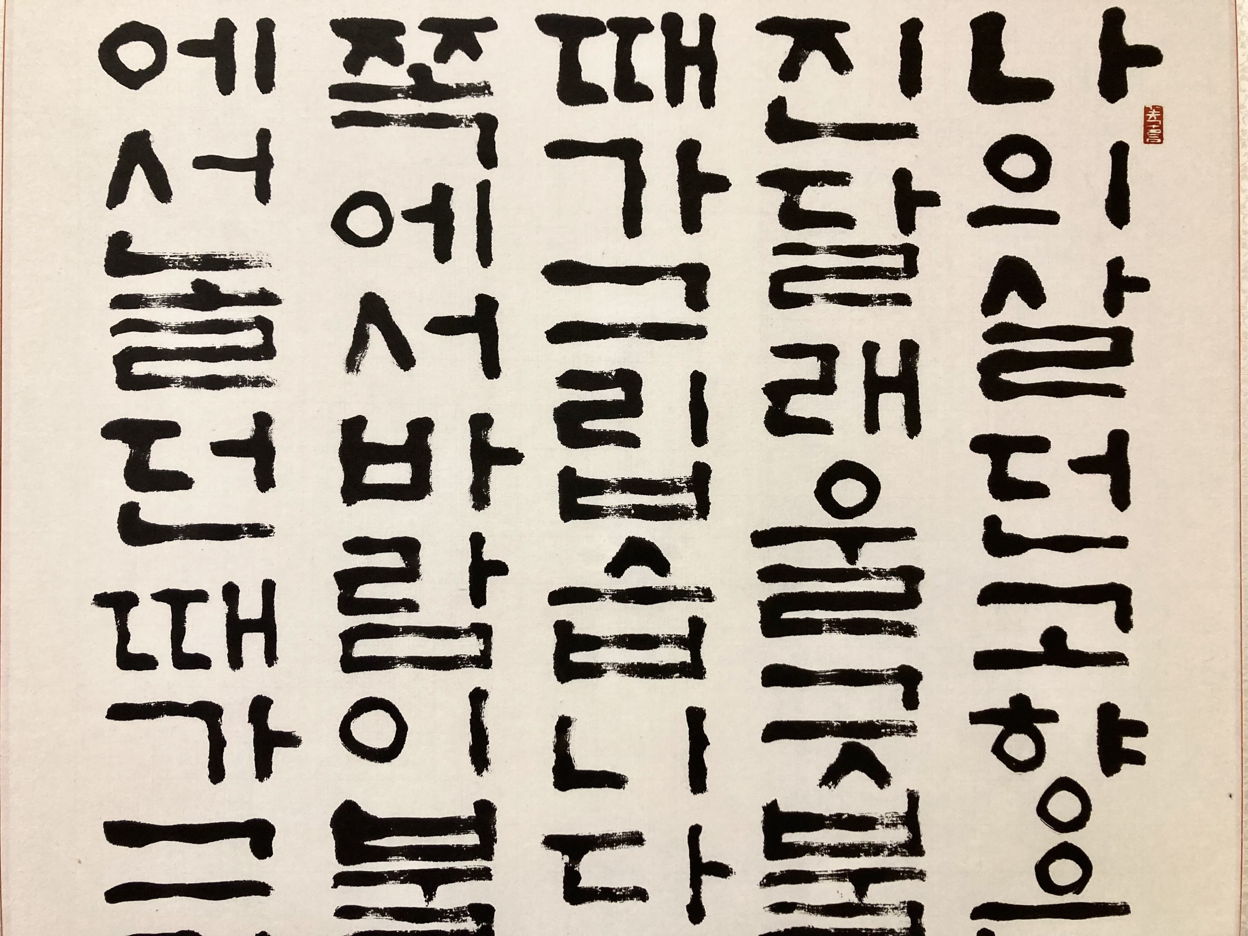 나의살던고향은
진달래울긋불
때가그립습니다
쪽에서바람이불
에서놀던때가그